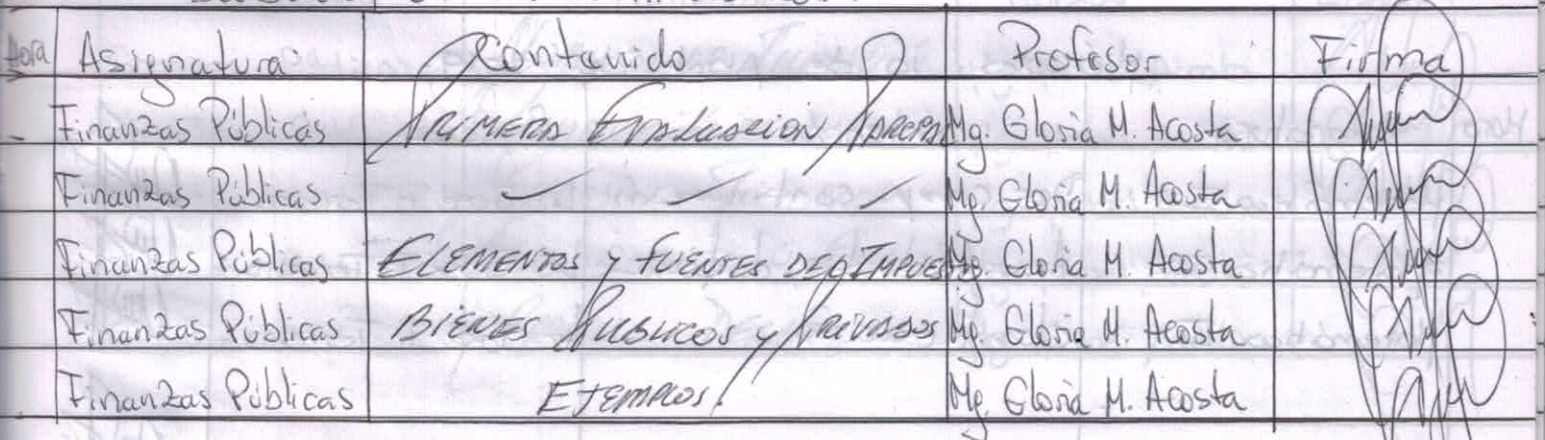 Hora Asignatura Contenido Profesor Firma
Finanzas Públicas PRIMERA Evaluacion PARCIAL Mg. Gloria M. Acosta
Finanzas Públicas Mg. Gloria M. Acosta
Finanzas Públicas ELEMENTOS y FUENTES DEL Mg. Gloria M. Acosta
Finanzas Públicas BIENES PUBLICOS y PRIVADOS Mg. Gloria M. Acosta
Finanzas Públicas EJEMPLOS! Mg. Gloria M. Acosta